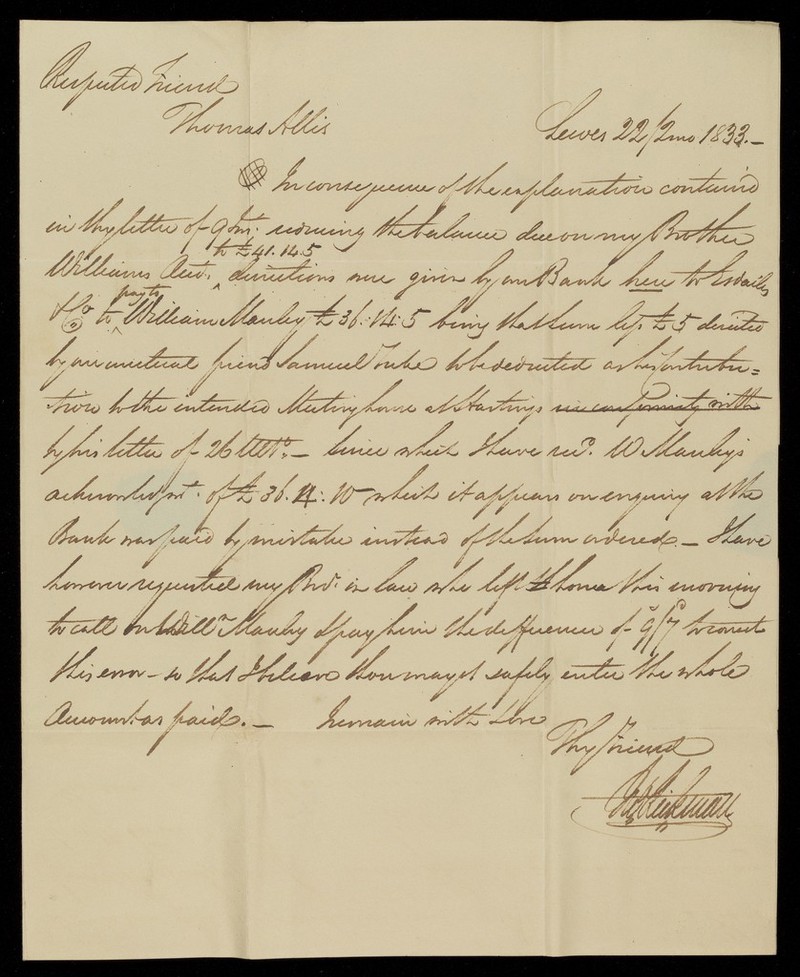 Respected Friend
Thomas Allis
Lewes 22/2mo 1833.—
In consequence of the explanation contain'd
in thy letter of 9 Int. reducing the balance due on my Brother
to £41.14.5
Williams Acct. directions were given by our Bank here to Esdailes
pay to
& Co to William Manley £36:14:5 being that sum less £5 directed
by our mutual friend Samuel Tuke to be deducted as his contribu=
tion to the intended Meeting house at Hastings in conformity with
by his letter of 26 Ulto.— Since which I have recd. W Manley's
acknowledgmt. of £36.4.10 which it appears on enquiry at the
Bank was paid by mistake instead of the sum ordered — I have
however requested my Bror. in law who left home this morning
to call on Willm Manley & pay him the difference of 9/7 to correct
this error — so that I believe thou mayst safely enter the whole
Amount as paid.— I remain with Love
Thy Friend
Rickman